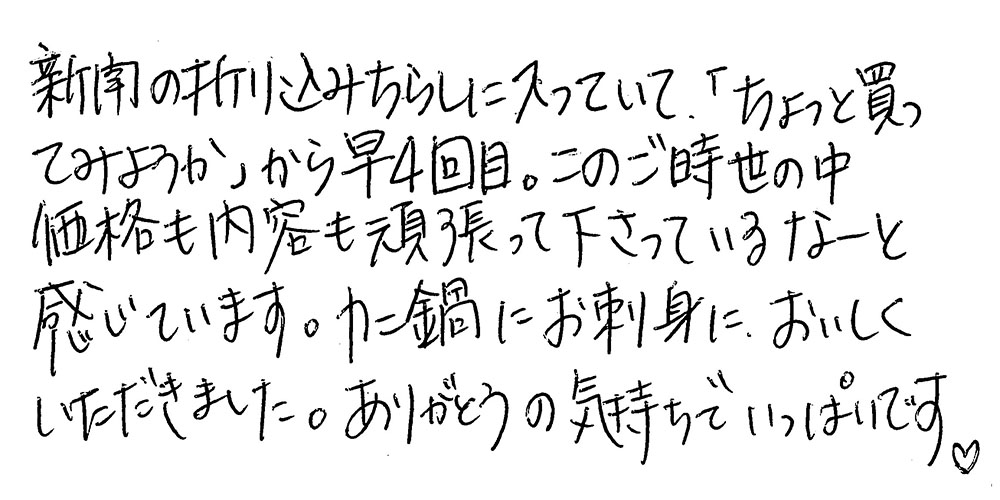 新聞の折り込みちらしに入っていて、「ちょっと買っ
てみようか」から早4回目。このご時世の中
価格も内容も頑張って下さっているなーと
感じています。カニ鍋にお刺身に、おいしく
いただきました。ありがとうの気持ちでいっぱいです♡